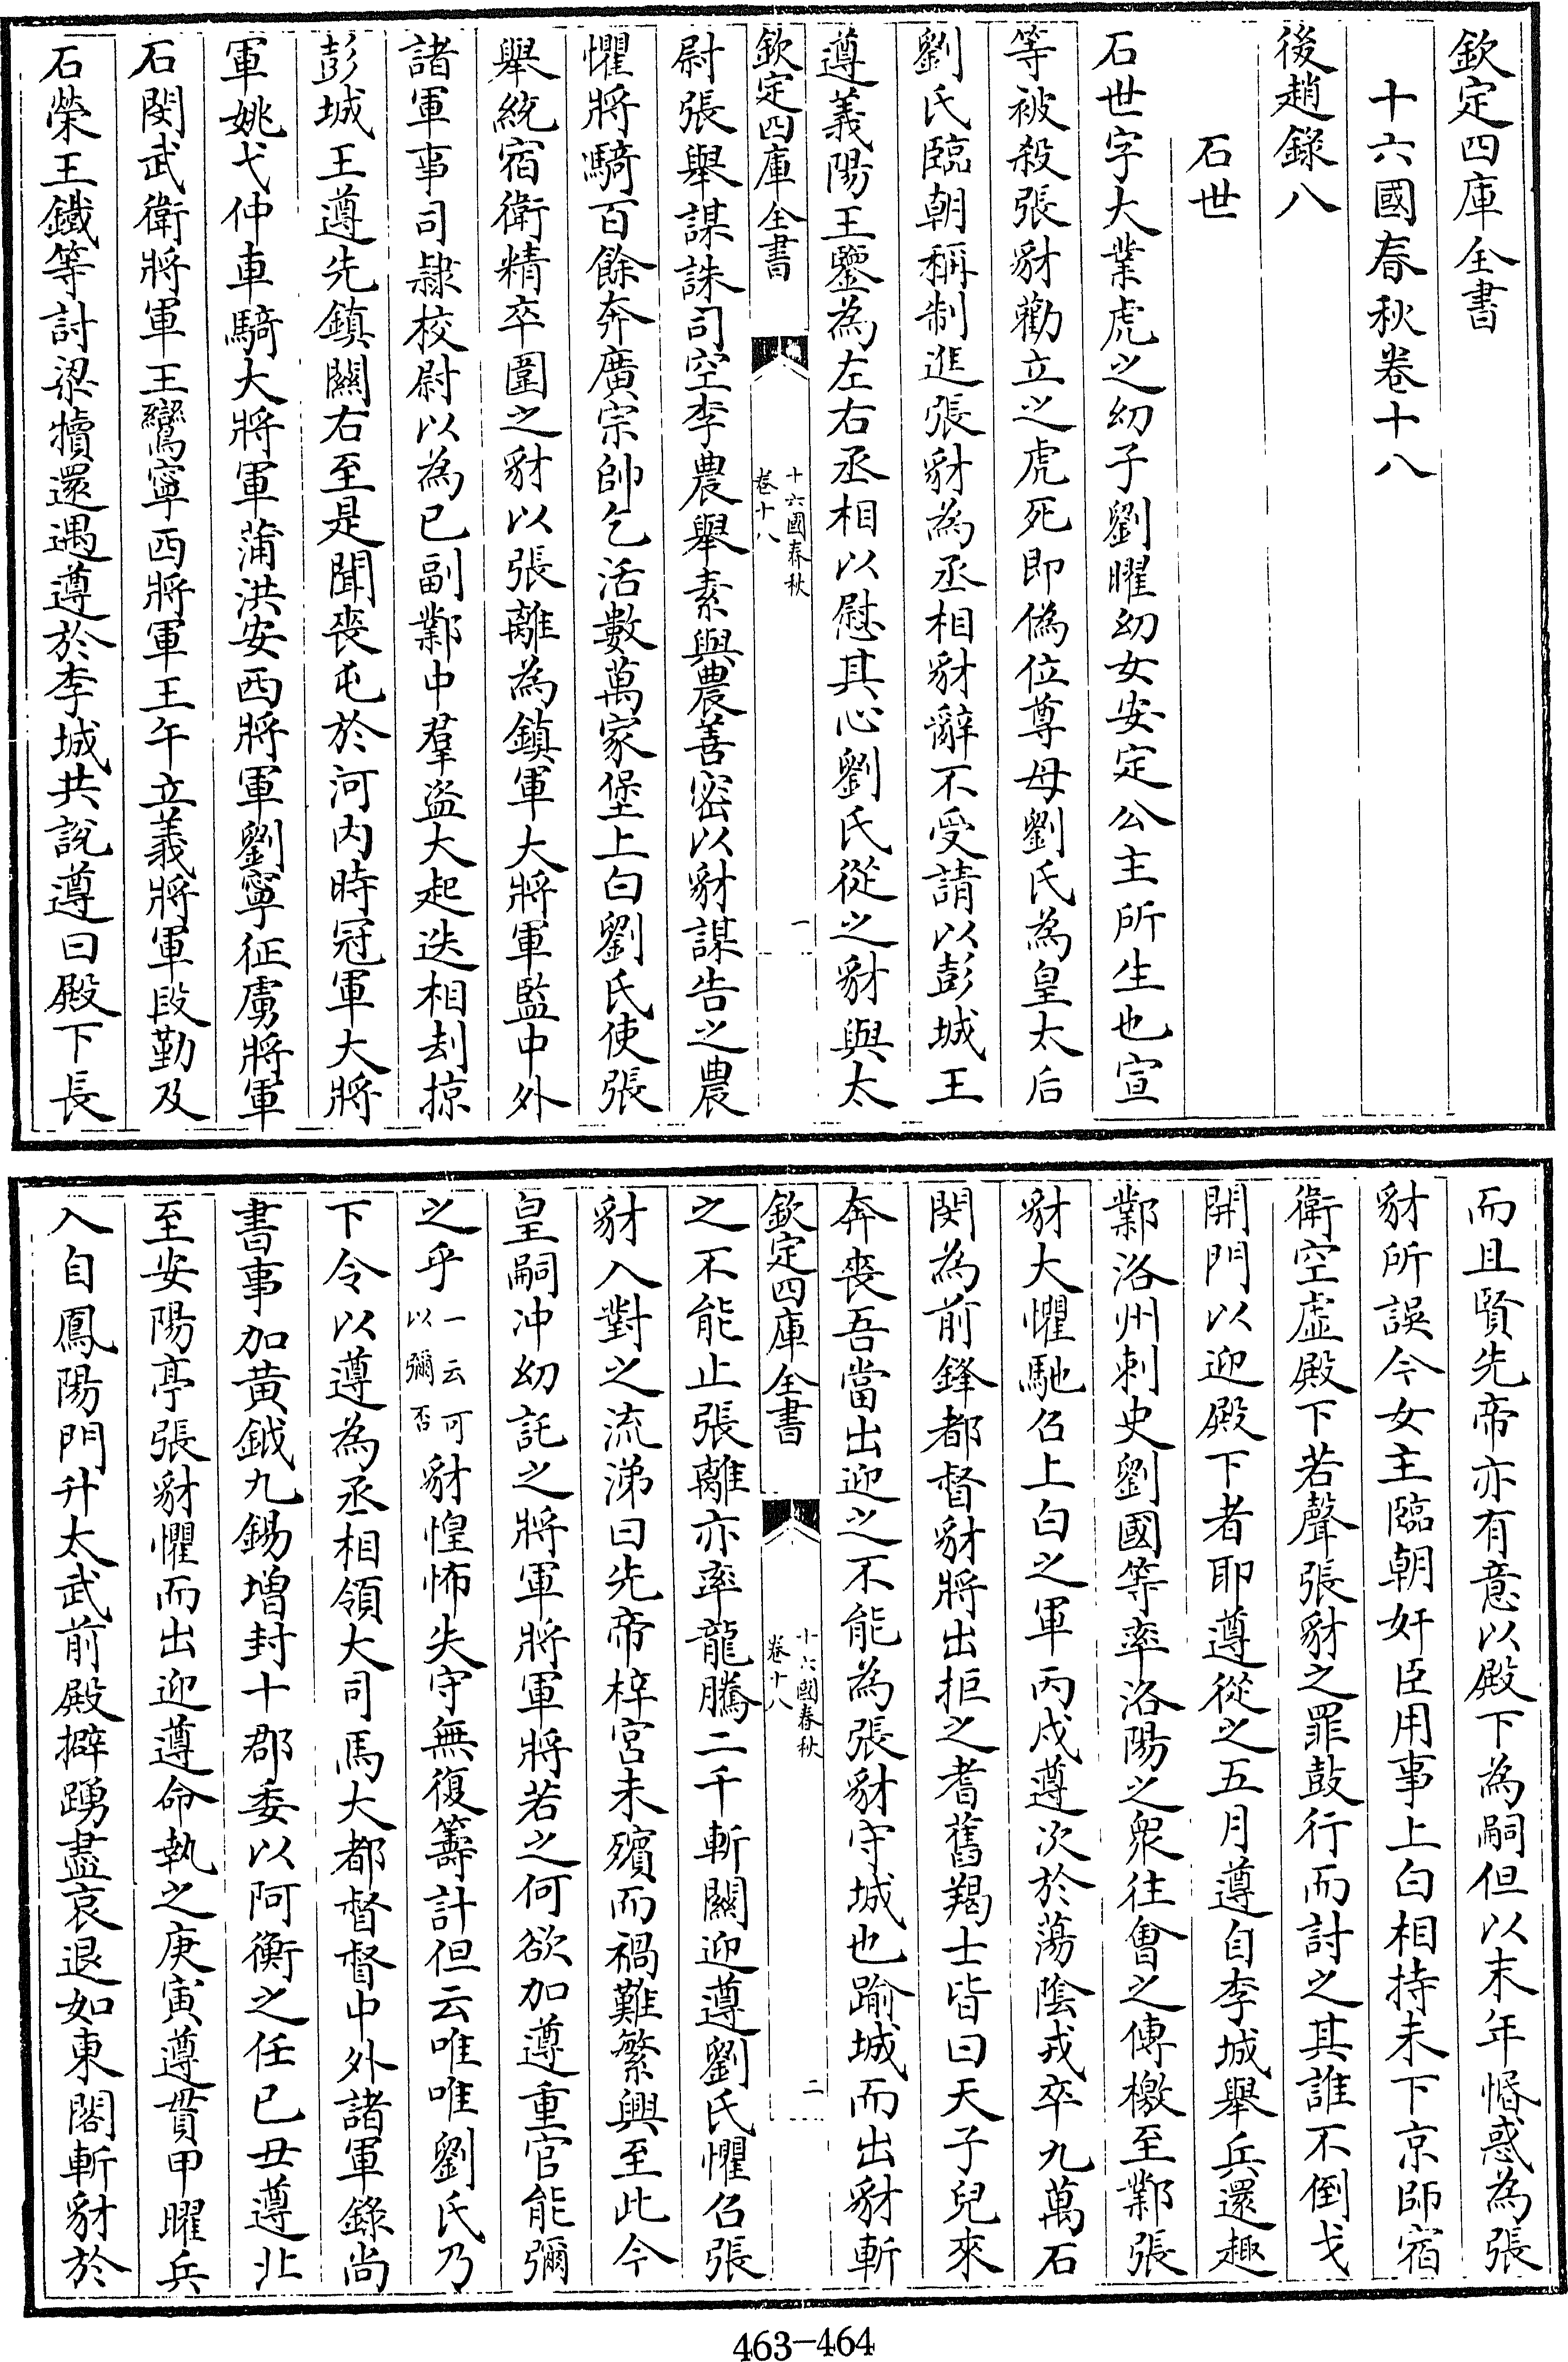 欽定四庫全書
十六國春秋卷十八
後趙錄八
石世
石世字大業虎之幼子劉曜幼女安定公主所生也宣
等被殺張豺勸立之虎死即偽位尊母劉氏為皇太后
劉氏臨朝稱制進張豺為丞相豺辭不受請以彭城王
遵義陽王鑒為左右丞相以慰其心劉氏從之豺與太
欽定四庫全書
十六國春秋
卷十八
一
尉張舉謀誅司空李農舉素與農善密以豺謀告之農
懼將騎百餘奔廣宗帥乞活數萬家堡上白劉氏使張
舉統宿衛精卒圍之豺以張離為鎮軍大將軍監中外
諸軍事司隸校尉以為己副鄴中羣盜大起迭相刦掠
彭城王遵先鎮關右至是聞喪屯於河內時冠軍大將
軍姚弋仲車騎大將軍蒲洪安西將軍劉寧征虜將軍
石閔武衛將軍王鸞寧西將軍王午立義將軍段勤及
石榮王鐵等討梁犢還遇遵於李城共說遵曰殿下長
而且賢先帝亦有意以殿下為嗣但以末年惛惑為張
豺所誤今女主臨朝奸臣用事上白相持未下京師宿
衛空虛殿下若聲張豺之罪鼓行而討之其誰不倒戈
開門以迎殿下者耶遵從之五月遵自李城舉兵還趣
鄴洛州刺史劉國等率洛陽之衆往會之傳檄至鄴張
豺大懼馳召上白之軍丙戌遵次於蕩陰戎卒九萬石
閔為前鋒都督豺將出拒之耆舊羯士皆曰天子兒來
奔喪吾當出迎之不能為張豺守城也踰城而出豺斬
欽定四庫全書
十六國春秋
卷十八
二
之不能止張離亦率龍騰二千斬關迎遵劉氏懼召張
豺入對之流涕曰先帝梓宮未殯而禍難繁興至此今
皇嗣冲幼託之將軍將軍將若之何欲加遵重官能彌
之乎一云可以彌否豺惶怖失守無復籌計但云唯唯劉氏乃
下令以遵為丞相領大司馬大都督督中外諸軍錄尚
書事加黃鉞九錫增封十郡委以阿衡之任己丑遵北
至安陽亭張豺懼而出迎遵命執之庚寅遵貫甲曜兵
入自鳳陽門升太武前殿擗踴盡哀退如東閣斬豺於
463-464